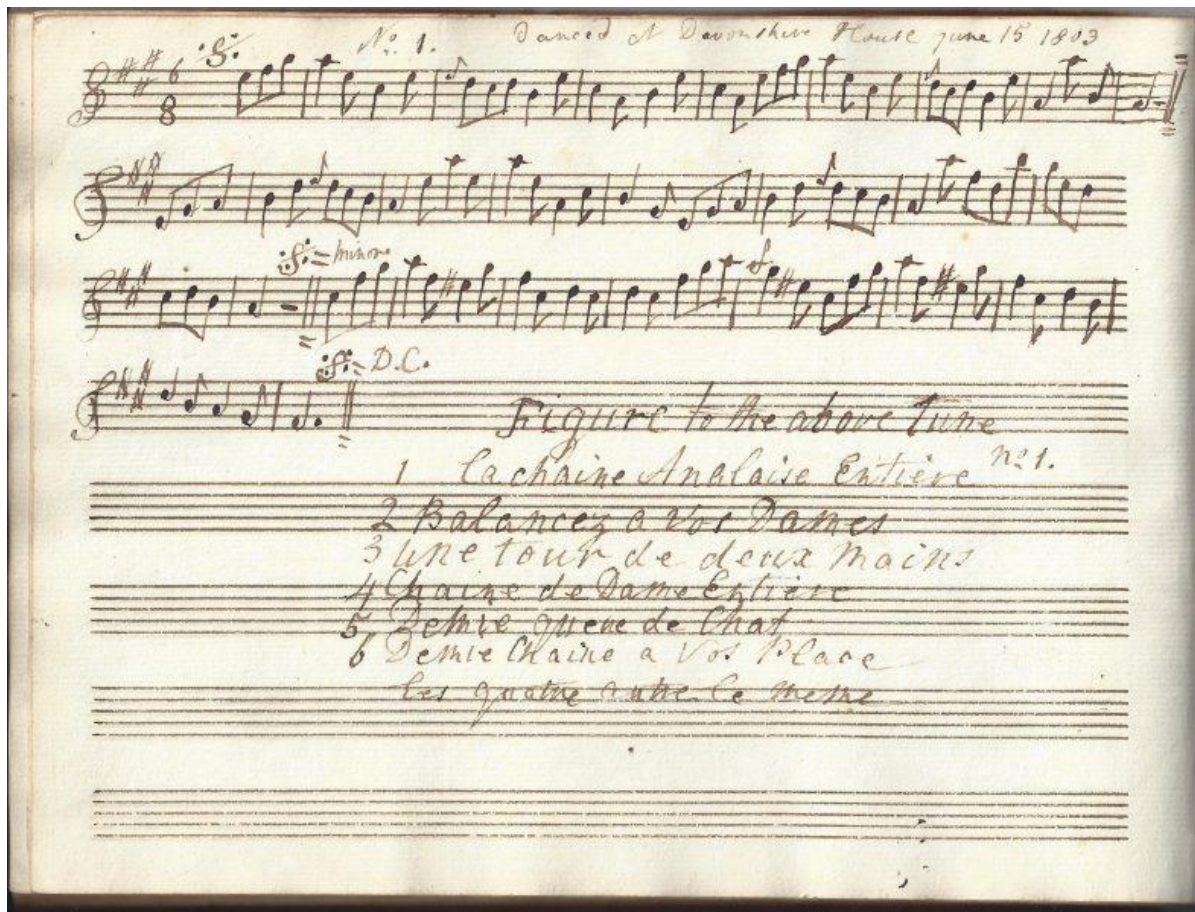 No. 1. Danced at Devonshire House June 15 1803
6
8
minore
D.C.
Figure to the above Tune
no 1.
1 La chaine Anglaise Entière
2 Balancez a Vos Dames
3 une tour de deux Mains
4 Chaine de Dame Entière
5 Demie queue de Chat
6 Demie Chaine a Vos Place
les quatre autre le mesme